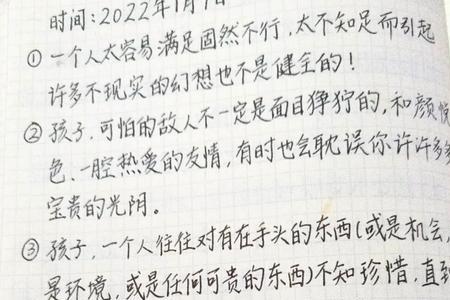 时间:2022年1月1日
① 一个人太容易满足固然不行,太不知足而引起
许多不现实的幻想也不是健全的!
② 孩子,可怕的敌人不一定是面目狰狞的,和颜悦
色、一腔热爱的友情,有时也会耽误你许许多多
宝贵的光阴。
③ 孩子,一个人往往对有在手头的东西(或是机会,
是环境,或是任何可贵的东西)不知珍惜,直到